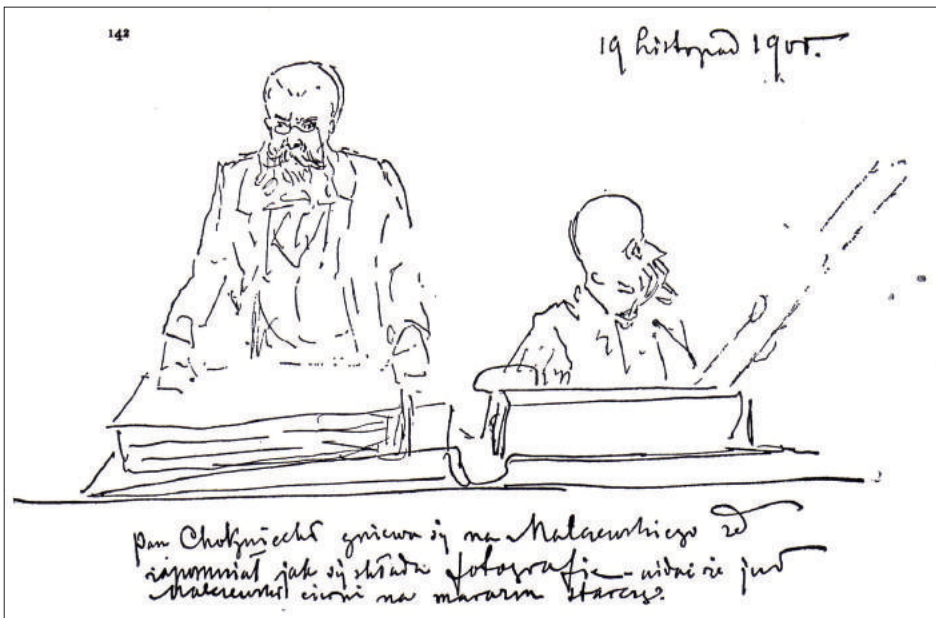 142
19 listopad 1905.
pan Chołoniecki gniewa się na Malczewskiego że
zapomniał jak się składa fotografie – widać że już
Malczewski cierpi na marazm starczy.